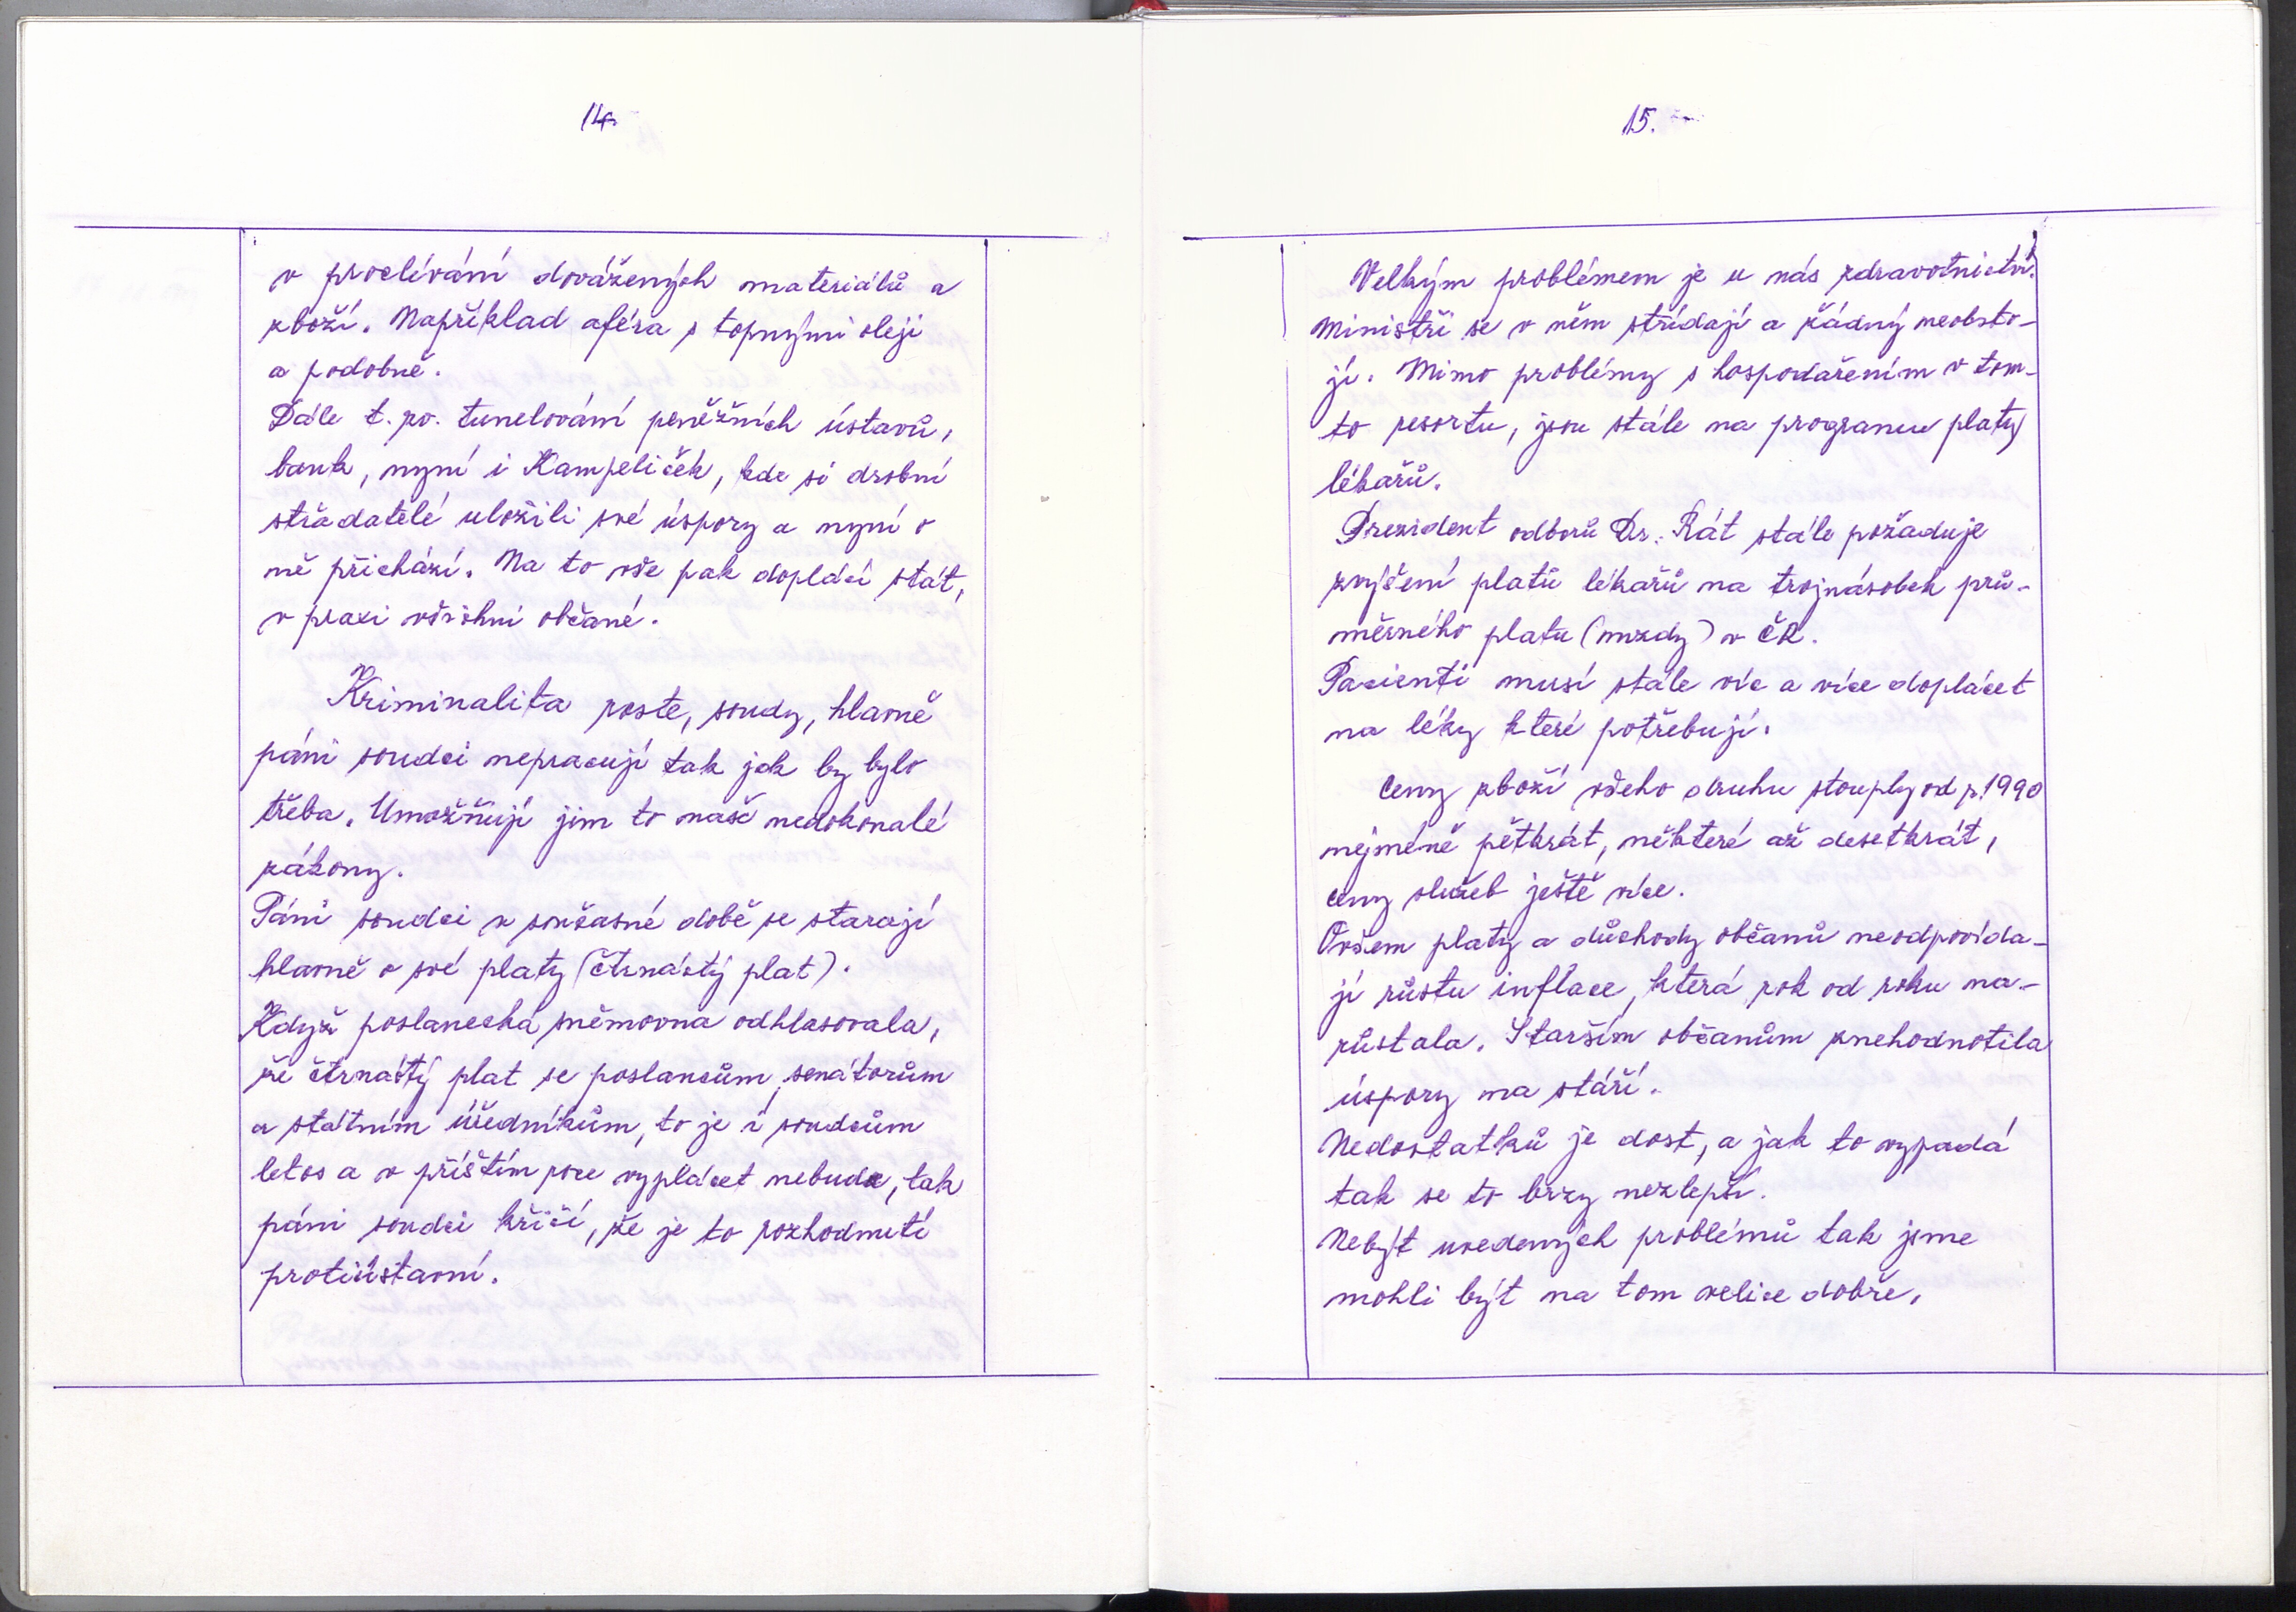 14.
v proclívání dovážených materiálů a
zboží. Například aféra s topnými oleji
a podobně.
Dále t. zv. tunelování peněžních ústavů,
bank, nyní i Kampeliček, kde si drobní
střadatelé uložili své úspory a nyní o
ně přichází. Na to vše pak doplácí stát,
v praxi všichni občané.
Kriminalita roste, soudy, hlavně
páni soudci nepracují tak jak by bylo
třeba. Umožňují jim to naše nedokonalé
zákony.
Páni soudci v současné době se starají
hlavně o své platy (čtrnáctý plat).
Když poslanecká sněmovna odhlasovala,
že čtrnáctý plat se poslancům, senátorům
a státním úředníkům, to je i soudcům
letos a v příštím roce vyplácet nebude, tak
páni soudci křičí, že je to rozhodnutí
protiústavní.
15.
Velkým problémem je u nás zdravotnictví.
Ministři se v něm střídají a žádný neobsto-
jí. Mimo problémy s hospodařením v tom-
to resortu, jsou stále na programu platy
lékařů.
Prezident odborů Dr. Rát stále požaduje
zvýšení platů lékařů na trojnásobek prů-
měrného platu (mzdy) v ČR.
Pacienti musí stále víc a více doplácet
na léky které potřebují.
Ceny zboží všeho druhu stouply od r. 1990
nejméně pětkrát, některé až desetkrát,
ceny služeb ještě více.
Ovšem platy a důchody občanů neodpovída-
jí růstu inflace, která rok od roku na-
růstala. Starším občanům znehodnotila
úspory na stáří.
Nedostatků je dost, a jak to vypadá
tak se to brzy nezlepší.
Nebýt uvedených problémů tak jsme
mohli být na tom velice dobře.